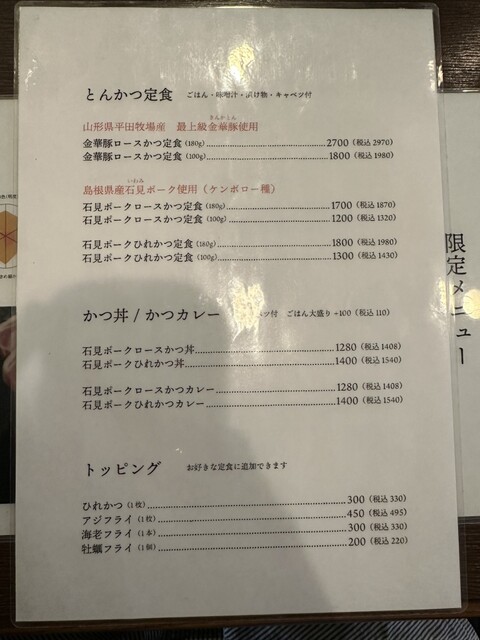 とんかつ定食 ごはん・味噌汁・漬け物・キャベツ付
山形県平田牧場産 最上級金華豚使用
きんかとん
金華豚ロースかつ定食 (180g) 2700 (税込 2970)
金華豚ロースかつ定食 (100g) 1800 (税込 1980)
島根県産石見ポーク使用（ケンボロー種）
いわみ
石見ポークロースかつ定食 (180g) 1700 (税込 1870)
石見ポークロースかつ定食 (100g) 1200 (税込 1320)
石見ポークひれかつ定食 (180g) 1800 (税込 1980)
石見ポークひれかつ定食 (100g) 1300 (税込 1430)
かつ丼 / かつカレー ベツ付 ごはん大盛り +100 (税込 110)
石見ポークロースかつ丼 1280 (税込 1408)
石見ポークひれかつ丼 1400 (税込 1540)
石見ポークロースかつカレー 1280 (税込 1408)
石見ポークひれかつカレー 1400 (税込 1540)
トッピング お好きな定食に追加できます
ひれかつ (1枚) 300 (税込 330)
アジフライ (1枚) 450 (税込 495)
海老フライ (1本) 300 (税込 330)
牡蠣フライ (1個) 200 (税込 220)
限定メニュー